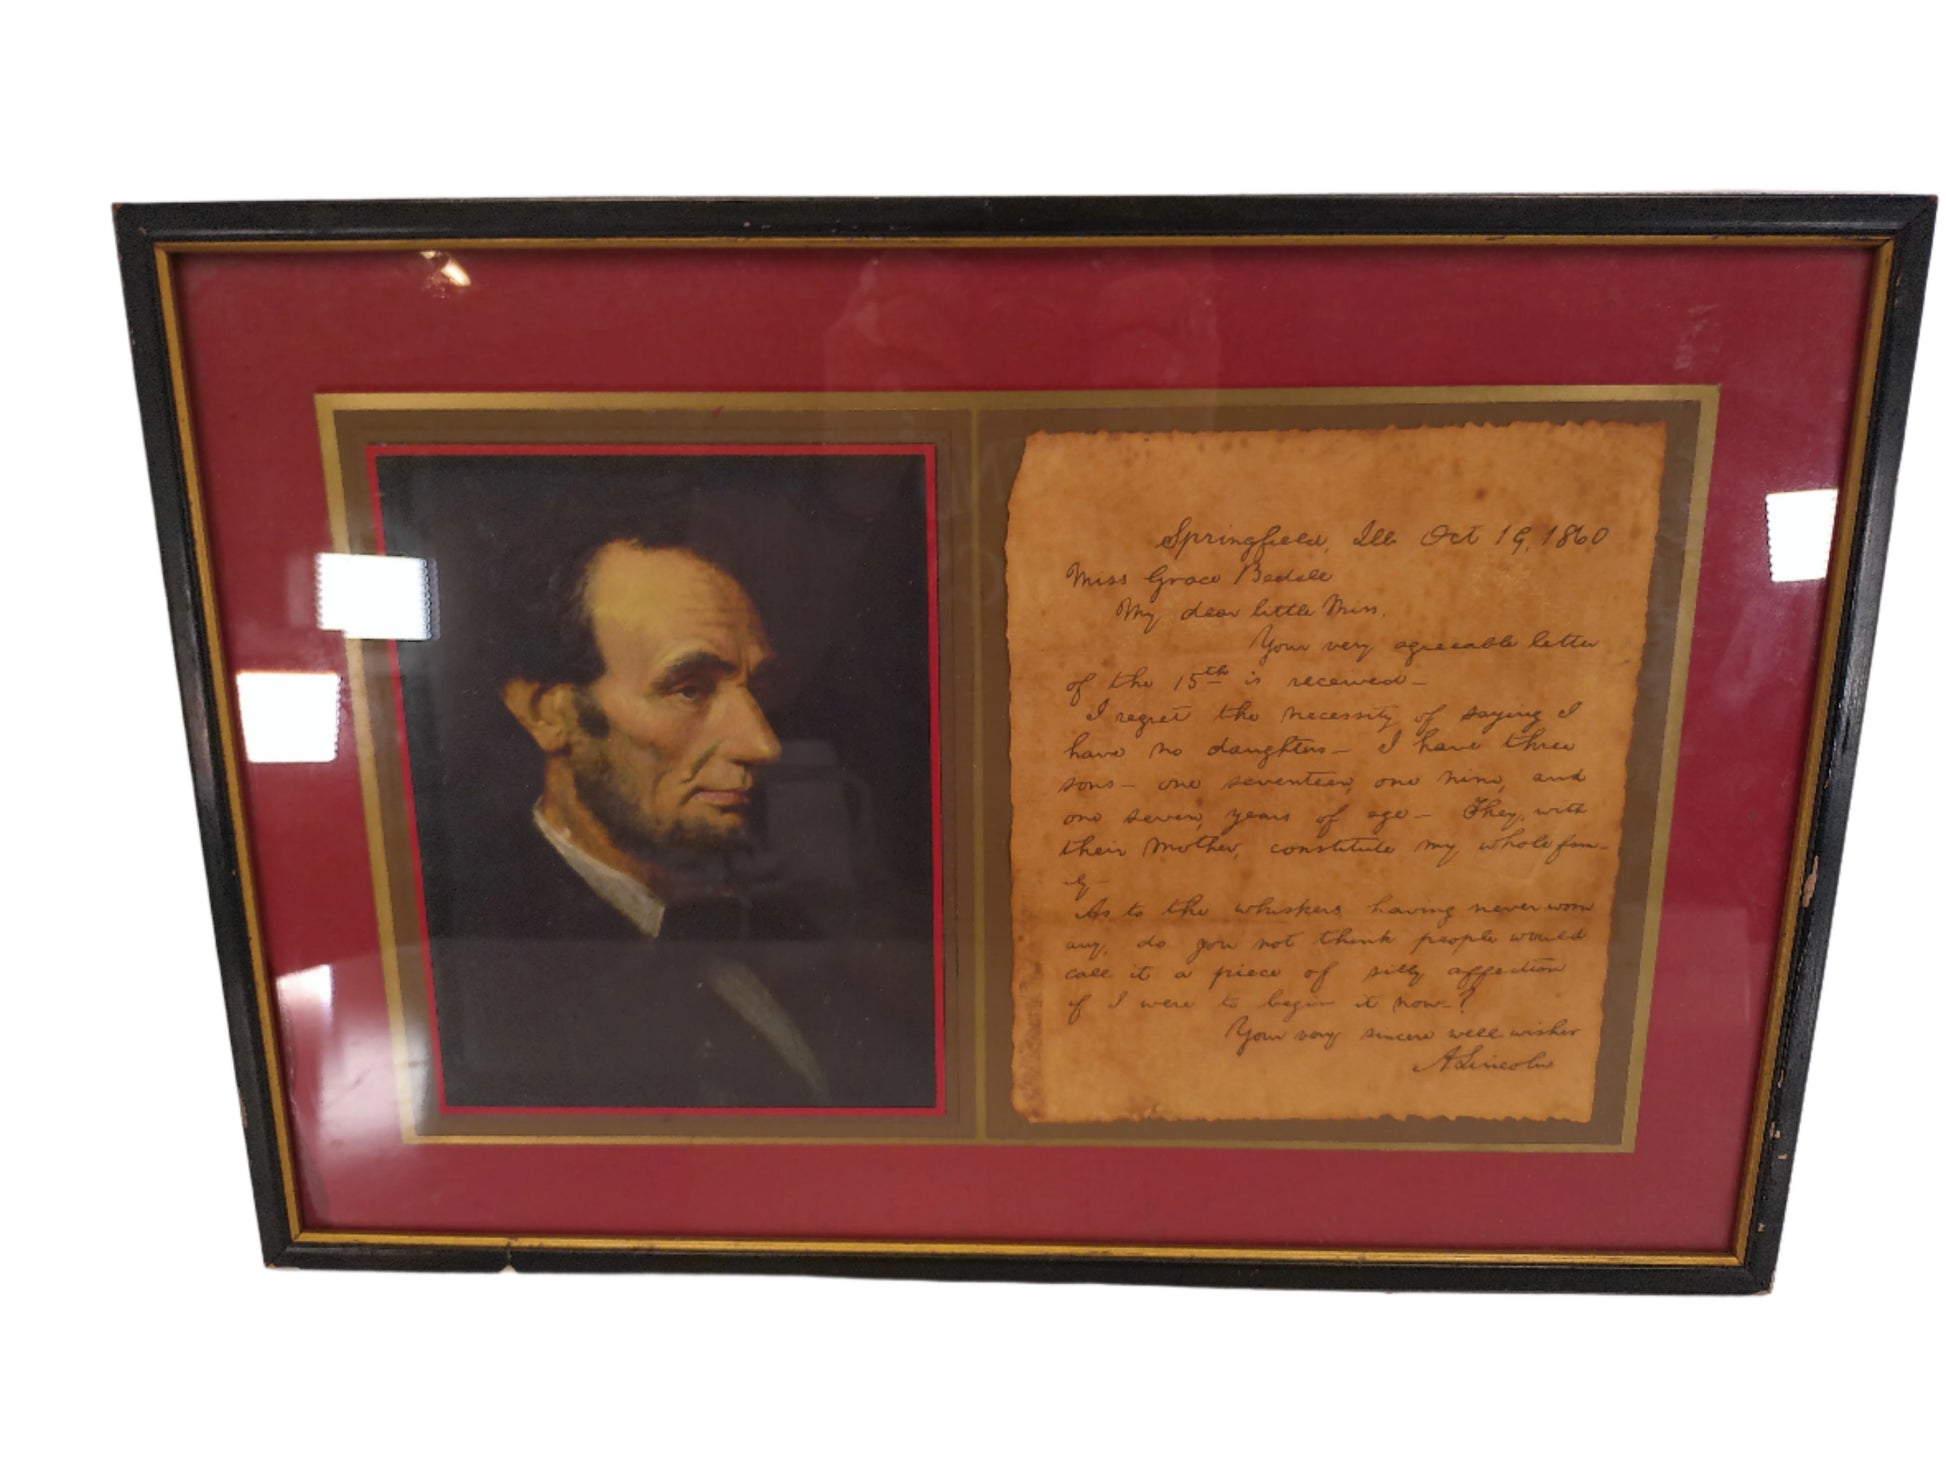 Springfield, Ill. Oct 19, 1860
Miss Grace Bedell
My dear little Miss.
Your very agreeable letter
of the 15th is received—
I regret the necessity of saying I
have no daughters— I have three
sons— one seventeen, one nine, and
one seven, years of age— They, with
their Mother, constitute my whole fam-
ily—
As to the whiskers, having never worn
any, do you not think people would
call it a piece of silly affection
if I were to begin it now—?
Your very sincere well wisher
A Lincoln